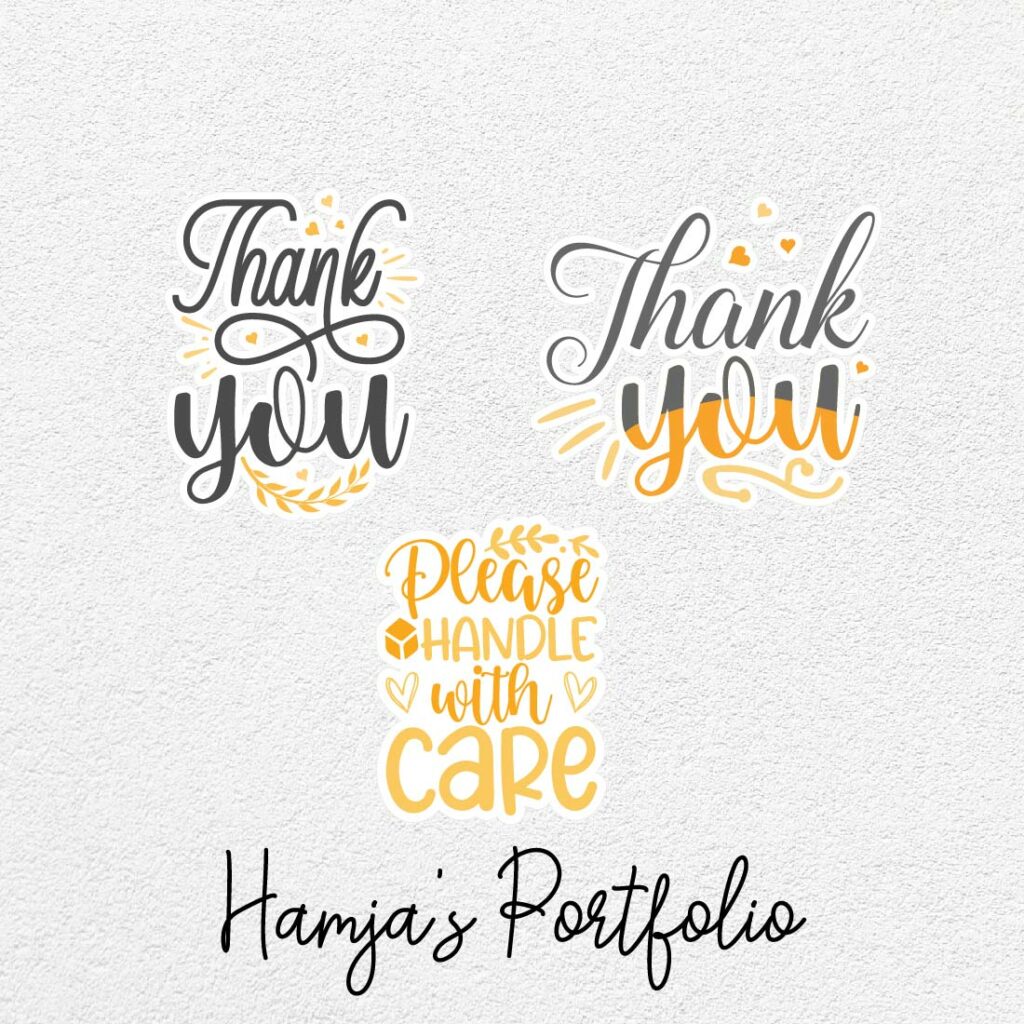 Thank
you
Thank
you
Please
HANDLE
with
CARE
Hamja's Portfolio